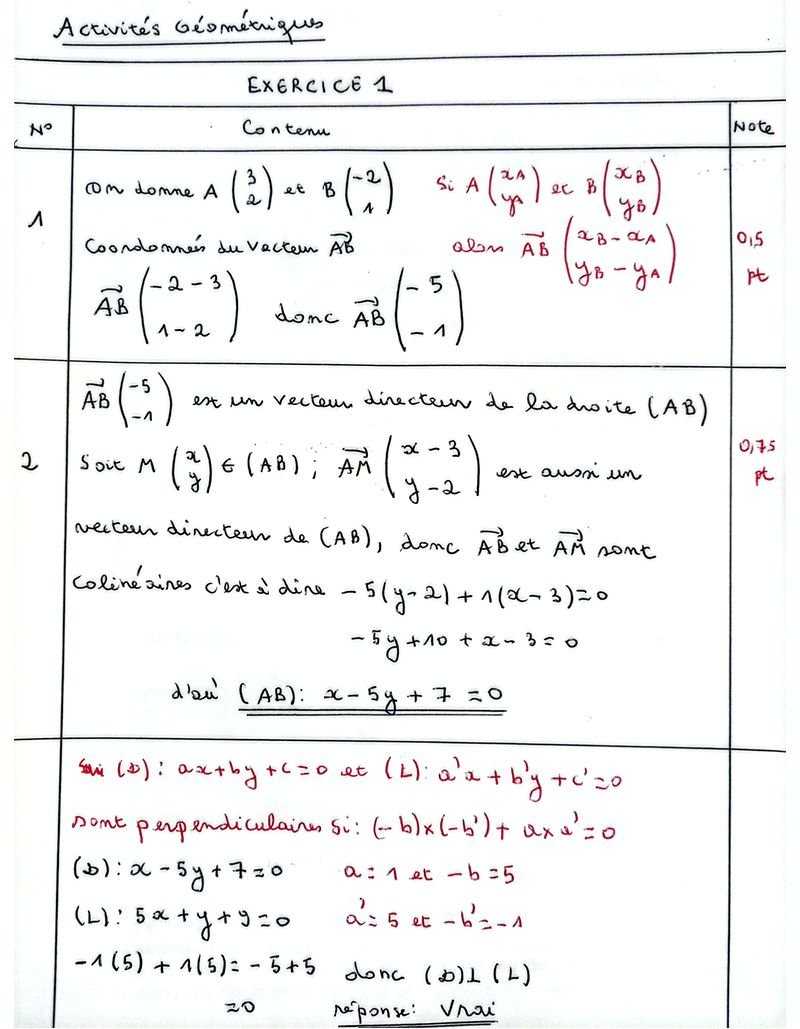 Activités Géométriques
EXERCICE 1
N° Contenu Note
1 On donne A (3 2) et B (-2 1) Si A (xA yA) et B (xB yB)
Coordonnés du vecteur AB→ alors AB→ (xB - xA yB - yA) 0,5 pt
AB→ (-2 - 3 1 - 2) donc AB→ (-5 -1)
2 AB→ (-5 -1) est un vecteur directeur de la droite (AB)
Soit M (x y) ∈ (AB) ; AM→ (x - 3 y - 2) est aussi un 0,75 pt
vecteur directeur de (AB), donc AB→ et AM→ sont
colinéaires c'est à dire - 5(y - 2) + 1(x - 3) = 0
- 5y + 10 + x - 3 = 0
d'où (AB): x - 5y + 7 = 0
(D): ax + by + c = 0 et (L): a'x + b'y + c' = 0
sont perpendiculaires si: (-b)×(-b') + a×a' = 0
(D): x - 5y + 7 = 0 a = 1 et -b = 5
(L): 5x + y + 9 = 0 a' = 5 et -b' = -1
-1(5) + 1(5) = -5 + 5 donc (D) ⊥ (L)
= 0 réponse: Vrai